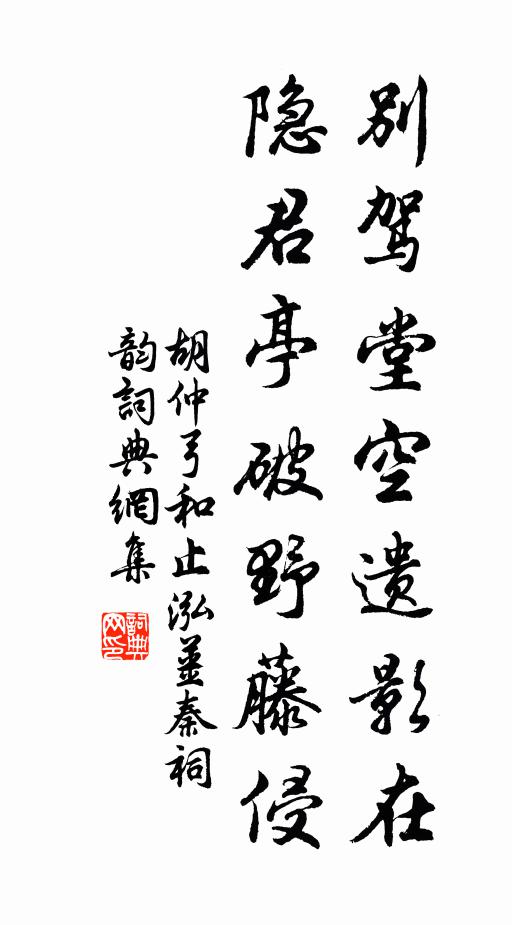 别驾堂空遗影在
隐君亭破野藤侵
胡仲弓和止泓姜秦祠
韵詞典網集
詞典網印